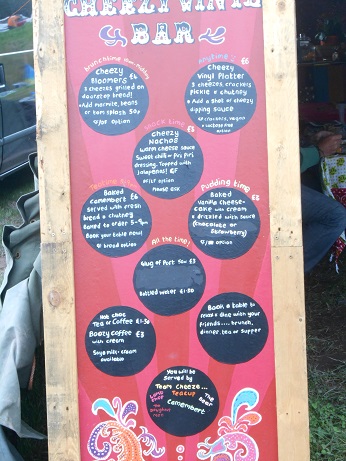 CHEEZY VINYL
BAR
Cheezy
Bloomers £6
3 cheeses grilled on
doorstep bread!
Add marmite, beans
or tom splosh 50p
option
Anytime £6
Cheezy
Vinyl Platter
3 cheeses, crackers
Pickle & chutney
Add a shot of cheezy
dipping sauce
GF crackers, vegan
& lactose free
option
Snack time £5
Cheezy
Nachos
Warm cheese sauce
Sweet chilli or Piri Piri
dressing. Topped with
Jalapenos! GF
option
Please ask
Baked
Camembert £6
served with fresh
bread & chutney
Baked to order 5-8pm
Book your table now!
GF bread option
Pudding time £5
Baked
Vanilla Cheese-
cake with cream
& drizzled with sauce
(Chocolate or
Strawberry)
option
All the time!
Slug of Port 50ml £3
Bottled Water £1.50
Hot choc
Tea or Coffee £1.50
Boozy Coffee £3
with cream
Soya milk + cream
available
Book a table to
relax & dine with your
friends.... brunch,
dinner, tea or supper
You will be
served by
Team Cheeze...
Teacup
The
Bear
Camembert